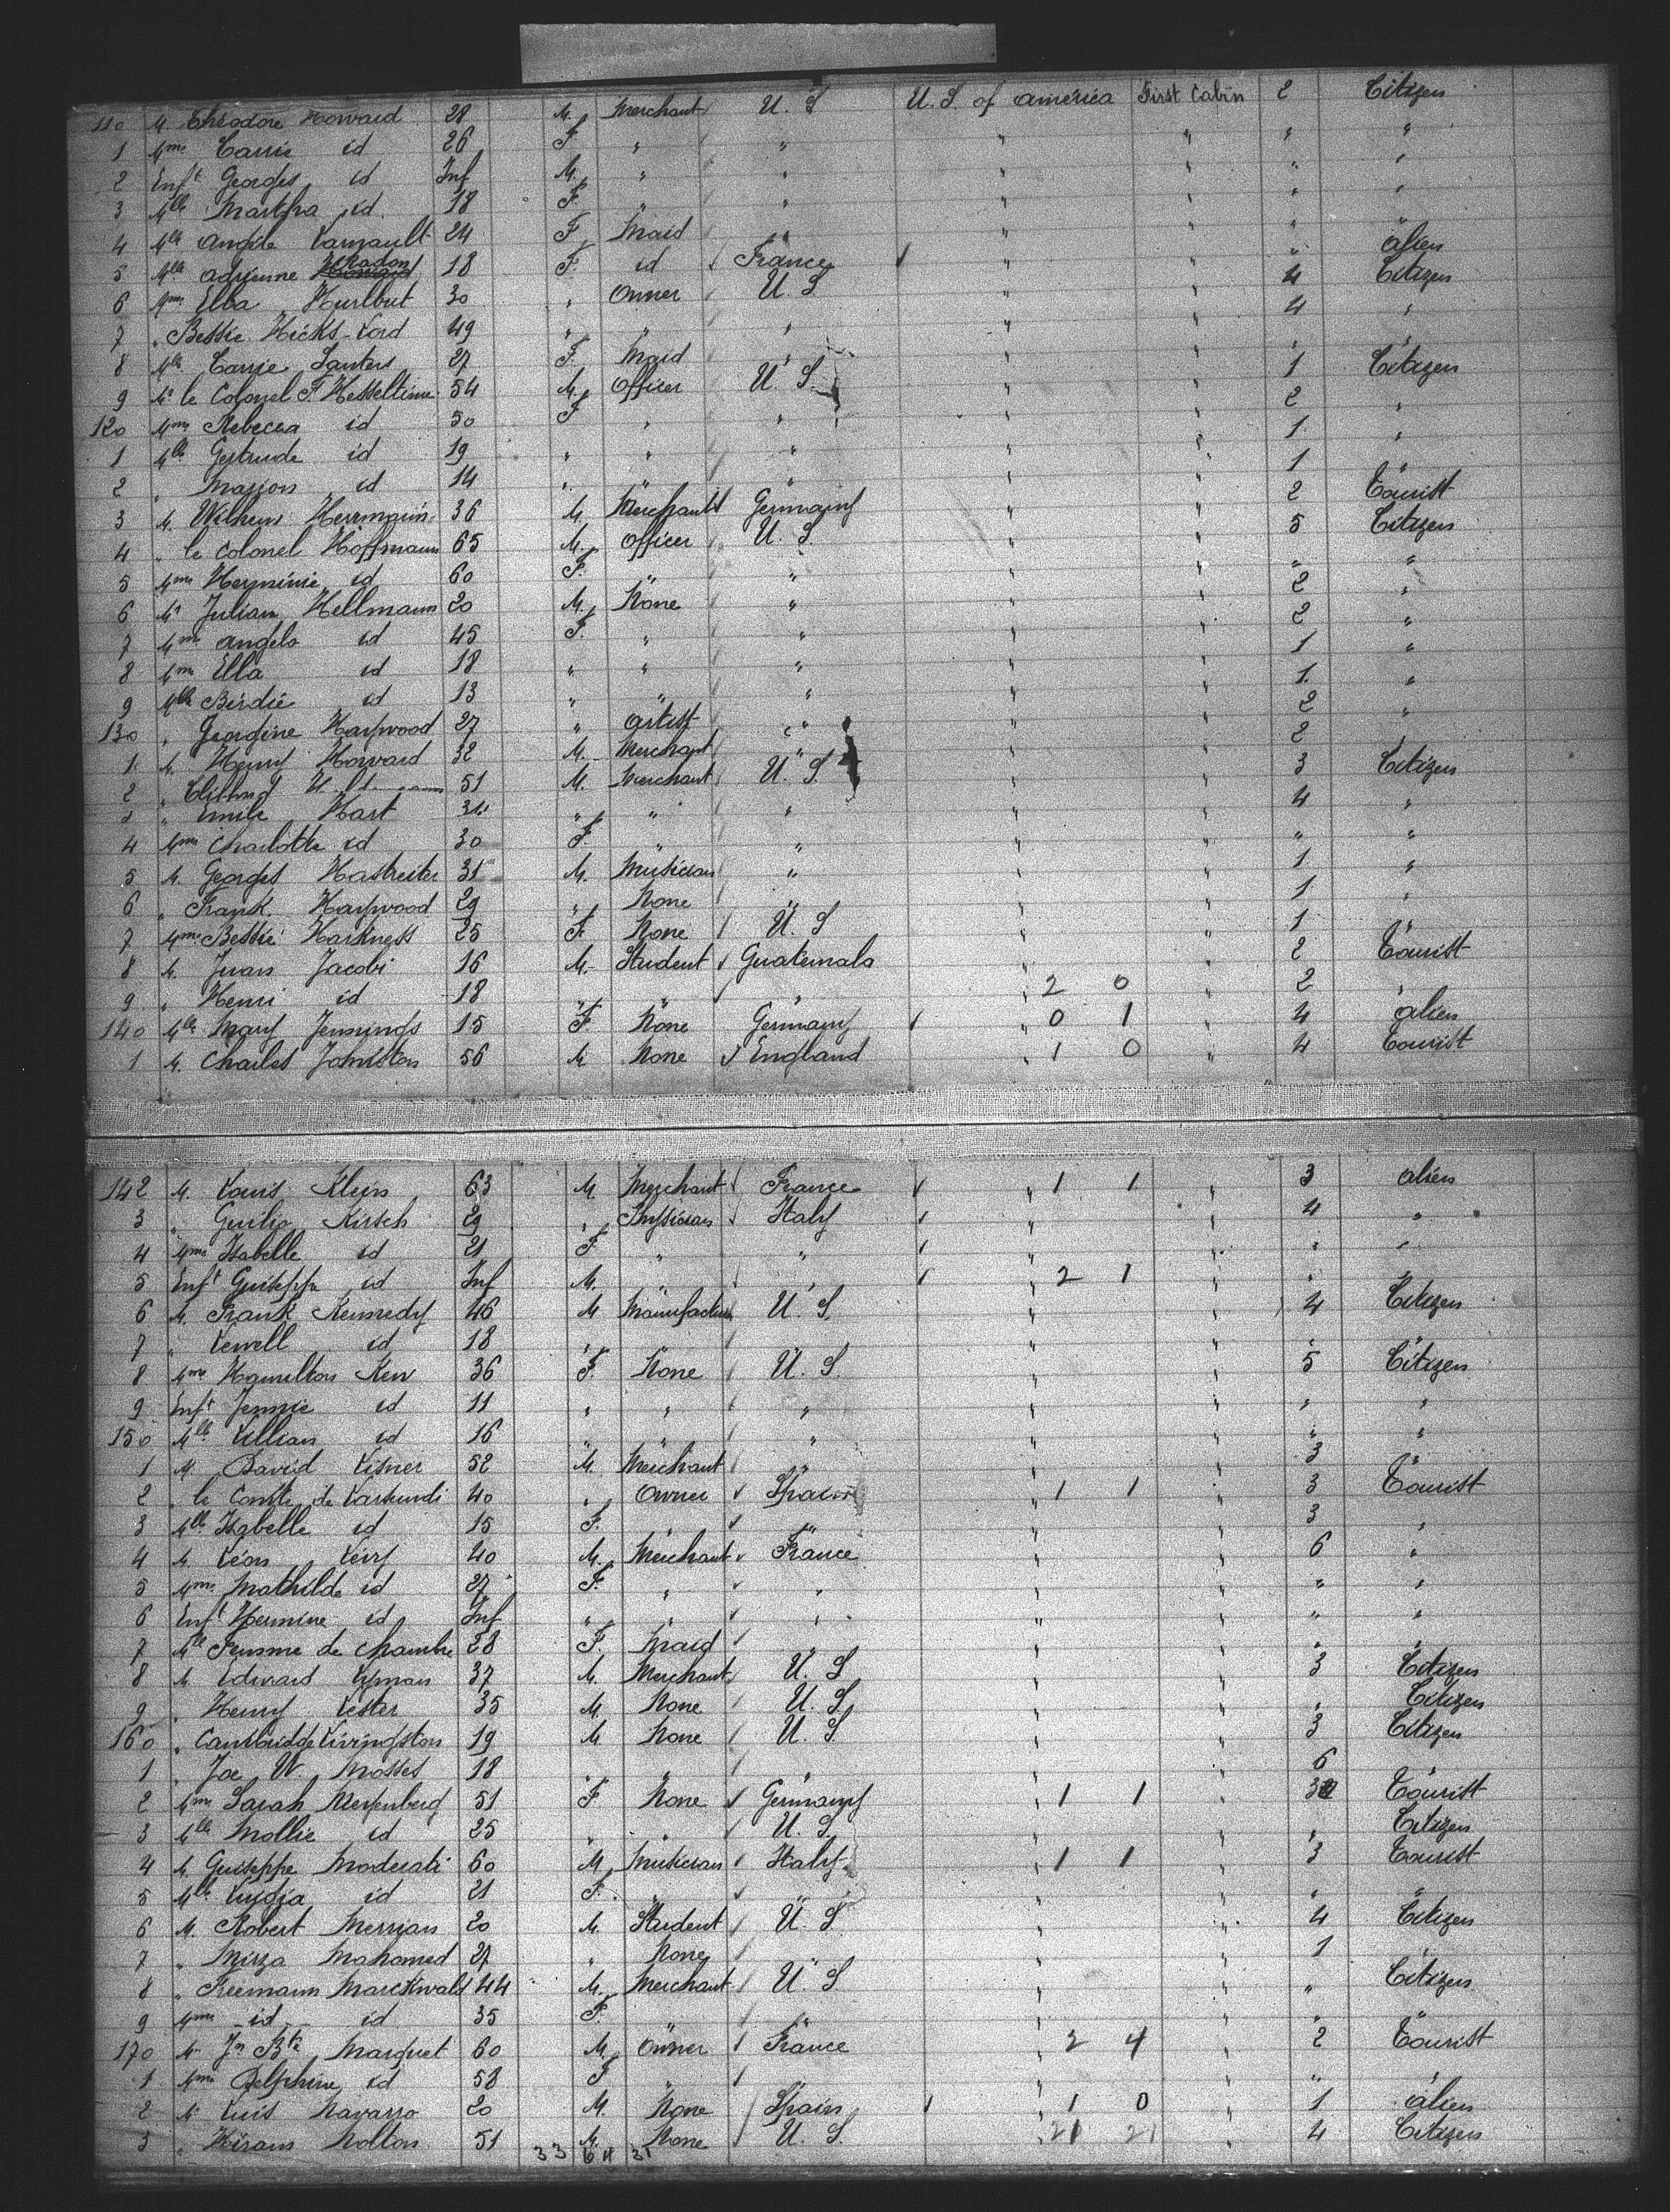 110 M. Théodore Howard 28 M. Merchant U. S U. S. of america First Cabin 2 Citizen
1 Mme Carrie id 26 F. " " " " " "
2 Enft Georges id Inf M. " " " " " "
3 Mlle Martha id 18 F. " " " " " "
4 Mlle Angèle 24 F. Maid " " " " "
5 Mlle Adrienne 18 F. id France " " " alien
6 Mme Elba Hurlbut 30 " Owner U. S " " 4 Citizen
7 " Bessie Hicks-Lord 49 " " " " " 4 "
8 Mlle Carrie 27 F. Maid " " " " "
9 Mr le Colonel F. Hesseltine 54 M. Officer U. S. " " 1 Citizen
120 Mme Rebecca id 50 F " " " " 2 "
1 Mlle Gertrude id 19 " " " " " 1 "
2 " Marjon id 14 " " " " " 1 "
3 M. Wilhem Herrmann 36 M. Merchant Germany " " 2 Tourist
4 " le Colonel Hoffmann 65 M. Officer U. S. " " 5 Citizen
5 Mme Herminie id 60 F. " " " " " "
6 Mr Julian Hellmann 20 M. None " " " 2 "
7 Mme Angela id 45 F. " " " " 2 "
8 Mme Ella id 18 " " " " " 1 "
9 Mlle Birdie id 13 " " " " " 1. "
130 " Georgine Harwood 27 " artist " " " 2 "
1 M. Henry Howard 32 M. Merchant " " " 2 "
2 " Clifford 51 M. Merchant U. S. " " 3 Citizen
3 " Emile Hart 34 " " " " " 4 "
4 Mme Charlotte id 30 F. " " " " " "
5 M. Georges Hastreiter 31 M. Musician " " " 1 "
6 " Frank Harwood 29 " None " " " 1 "
7 Mme Bessie Harkness 25 F. None U. S " " 1 "
8 M. Juan Jacobi 16 M. Student Guatemala " " 2 Tourist
9 " Henri id 18 " " " " 2 0 " 2 "
140 Mlle Mary Jennings 15 F. None Germany " 0 1 " 4 alien
1 M. Charles Johnston 56 M None England " 1 0 " 4 Tourist
142 M. Louis Klein 63 M. Merchant France " 1 1 " 3 alien
3 " Guilio Kirsch 29 " Physician Italy " " 4 "
4 Mme Isabelle id 21 F. " " " " " "
5 Enft Guiseppe id Inf M. " " " 2 1 " " "
6 M. Frank Kennedy 46 M Manufacturer U. S. " " 4 Citizen
7 " Lewell id 18 " " " " " " "
8 Mme Hamilton Kew 36 F. None U. S. " " 5 Citizen
9 Enft Jennie id 11 " " " " " " "
150 Mlle Lillian id 16 " " " " " " "
1 M. David Lisner 52 M. Merchant " " " 3 "
2 " le Comte de 40 " Owner Spain " 1 1 " 3 Tourist
3 Mlle Isabelle id 15 F. " " " " 3 "
4 M. Léon Lévy 40 M. Merchant France " " 6 "
5 Mme Mathilde id 27 F. " " " " " "
6 Enft Hermine id Inf " " " " " " "
7 Mlle Femme de Chambre 28 F. Maid " " " " "
8 M Edward Lyman 37 M. Merchant U. S " " 3 Citizen
9 " Henry Lester 35 M. None U. S. " " " Citizen
160 " Cambridge Livingston 19 M None U. S " " 3 Citizen
1 " Joe W. Mosses 18 " " " " " 6 "
2 Mme Sarah Meyenberg 51 F. None Germany " 1 1 " 3 Tourist
3 Mlle Mollie id 25 " " U. S. " " " Citizen
4 M. Guiseppe Moderati 60 M. Musician Italy " 1 1 " 3 Tourist
5 Mlle Luigia id 21 F. " " " " " "
6 M. Robert Merrjan 20 M. Student U. S " " 4 Citizen
7 " Mirza Mahomed 27 " None " " " 1 "
8 " Freemann Marckwald 44 M. Merchant U. S " " " Citizen
9 Mme id id 35 F. " " " " " "
170 M Jn Bte Marquet 60 M. Owner France " 2 4 " 2 Tourist
1 Mme Delphine id 58 F " " " " " "
2 M. Luis Navarro 20 M. None Spain " 1 0 " 1 alien
3 " Hiram Nolton 51 M. None U. S. " 21 21 " 4 Citizen
33 64 31